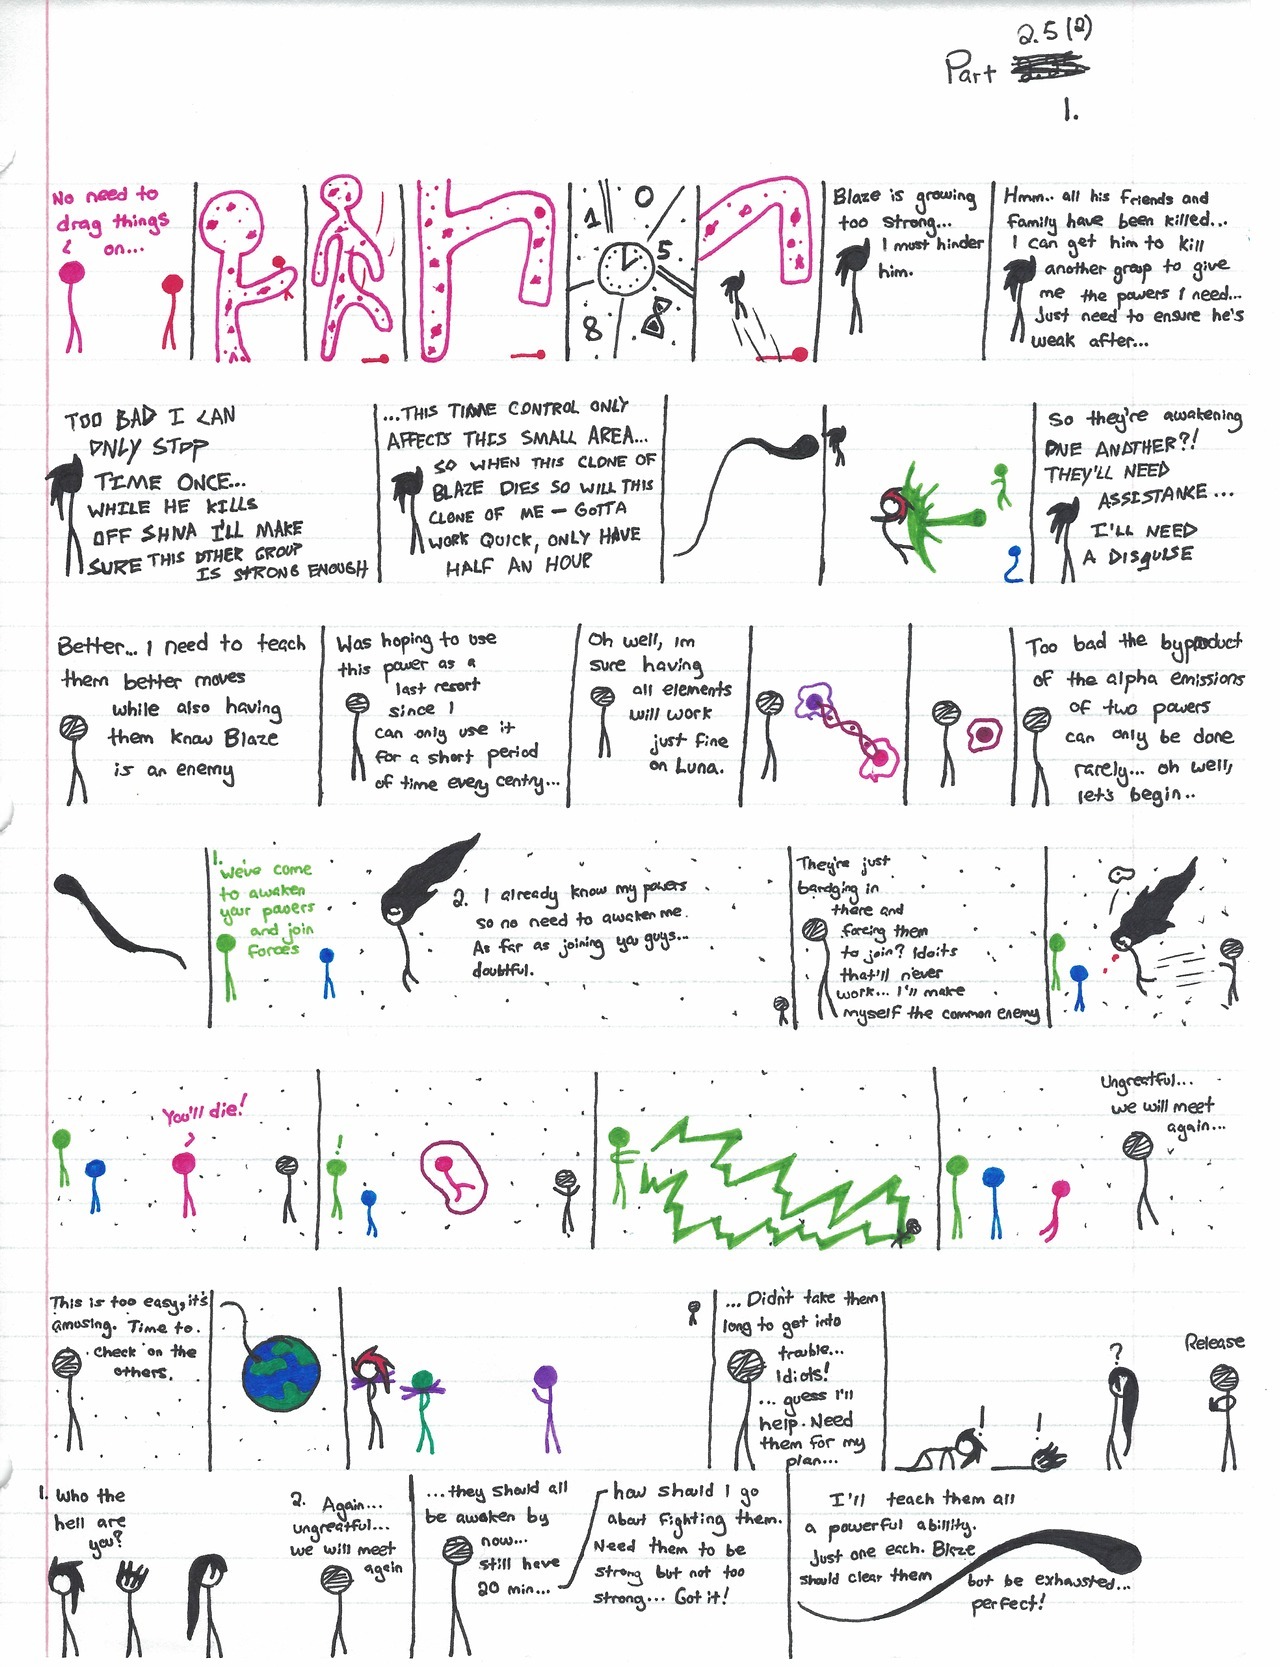 2.5 (2)
Part
1.
No need to
drag things
on...
1
0
5
8
Blaze is growing
too strong...
I must hinder
him.
Hmm.. all his friends and
family have been killed...
I can get him to kill
another group to give
me the powers I need...
Just need to ensure he's
weak after...
TOO BAD I CAN
ONLY STOP
TIME ONCE...
WHILE HE KILLS
OFF SHIVA I'LL MAKE
SURE THIS OTHER GROUP
IS STRONG ENOUGH
...THIS TIME CONTROL ONLY
AFFECTS THIS SMALL AREA...
SO WHEN THIS CLONE OF
BLAZE DIES SO WILL THIS
CLONE OF ME - GOTTA
WORK QUICK, ONLY HAVE
HALF AN HOUR
So they're awakening
ONE ANOTHER?!
THEY'LL NEED
ASSISTANCE...
I'LL NEED
A DISGUISE
Better... I need to teach
them better moves
while also having
them know Blaze
is an enemy
Was hoping to use
this power as a
last resort
since I
can only use it
for a short period
of time every centry...
Oh well, Im
sure having
all elements
will work
just fine
on Luna.
Too bad the byproduct
of the alpha emissions
of two powers
can only be done
rarely... oh well,
let's begin..
1.
We've come
to awaken
your powers
and join
forces
2. I already know my powers
so no need to awaken me.
As far as joining you guys...
doubtful.
They're just
bardging in
there and
forcing them
to join? Idoits
that'll never
work... I'll make
myself the common enemy
You'll die!
!
Ungreatful...
we will meet
again...
This is too easy, it's
amusing. Time to
check on the
others.
... Didn't take them
long to get into
trouble...
Idiots!
... guess I'll
help. Need
them for my
plan...
!
!
?
Release
1. Who the
hell are
you?
2. Again...
ungreatful...
we will meet
again
...they should all
be awaken by
now...
still have
20 min...
how should I go
about fighting them.
Need them to be
strong but not too
strong... Got it!
I'll teach them all
a powerful abillity.
Just one each. Blaze
should clear them
but be exhausted...
perfect!